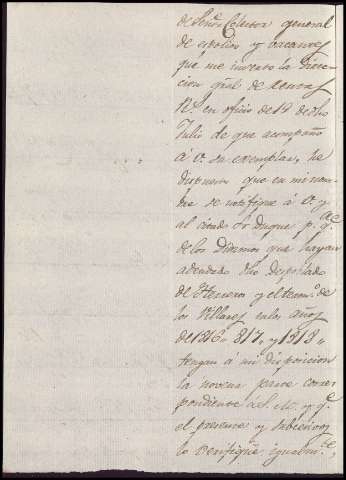 de Señor Colector general
de espolios y vacantes
que me inserto la Direc
cion gral de rentas
Rs. en oficio de 19 de dho
Julio de que acompaño
á V. un exemplar, he
dispuesto que en mi nom
bre se notifique á V. y
al citado Sr Duque p.a q.e
de los Diezmos que hayan
adeudado dho despoblado
de Heneros y el term.o de
los Villares en los años
de 1816, 817, y 1818,
tengan á mi disposicion
la novena parte corres
pondiente á S. M. y q.e
el presente y subcesivos
lo verifiquen igualm.te,